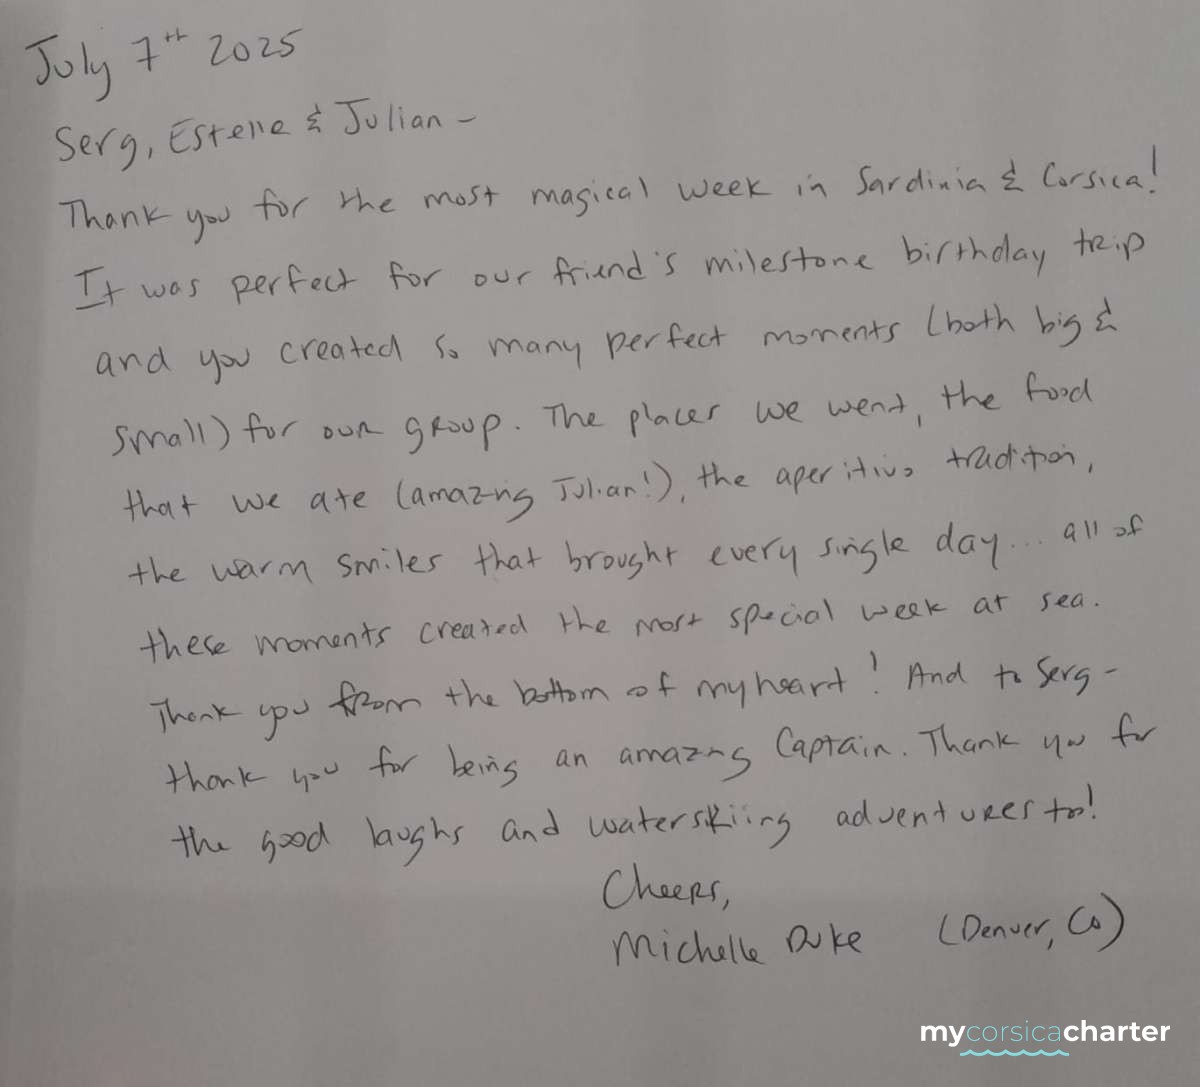 July 7th 2025
Serg, Estelle & Julian –
Thank you for the most magical week in Sardinia & Corsica!
It was perfect for our friend's milestone birthday trip
and you created so many perfect moments (both big &
small) for our group. The places we went, the food
that we ate (amazing Julian!), the aperitivo tradition,
the warm smiles that brought every single day... all of
these moments created the most special week at sea.
Thank you from the bottom of my heart! And to Serg –
thank you for being an amazing Captain. Thank you for
the good laughs and waterskiing adventures too!
Cheers,
Michelle Duke (Denver, CO)
mycorsicacharter